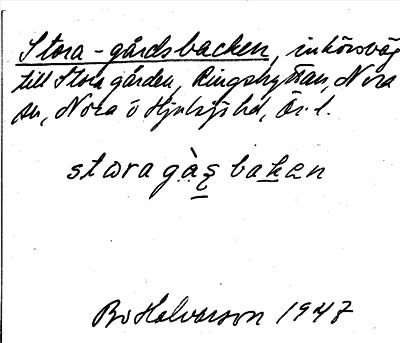 Stora-gårdsbacken, inkörsväg
till Stora gården, Ringshyttan, Nora
sn, Nora o Hjulsjö hd, Ör. l.
stωragàs̱ baḵen
Bo Halvarson 1947